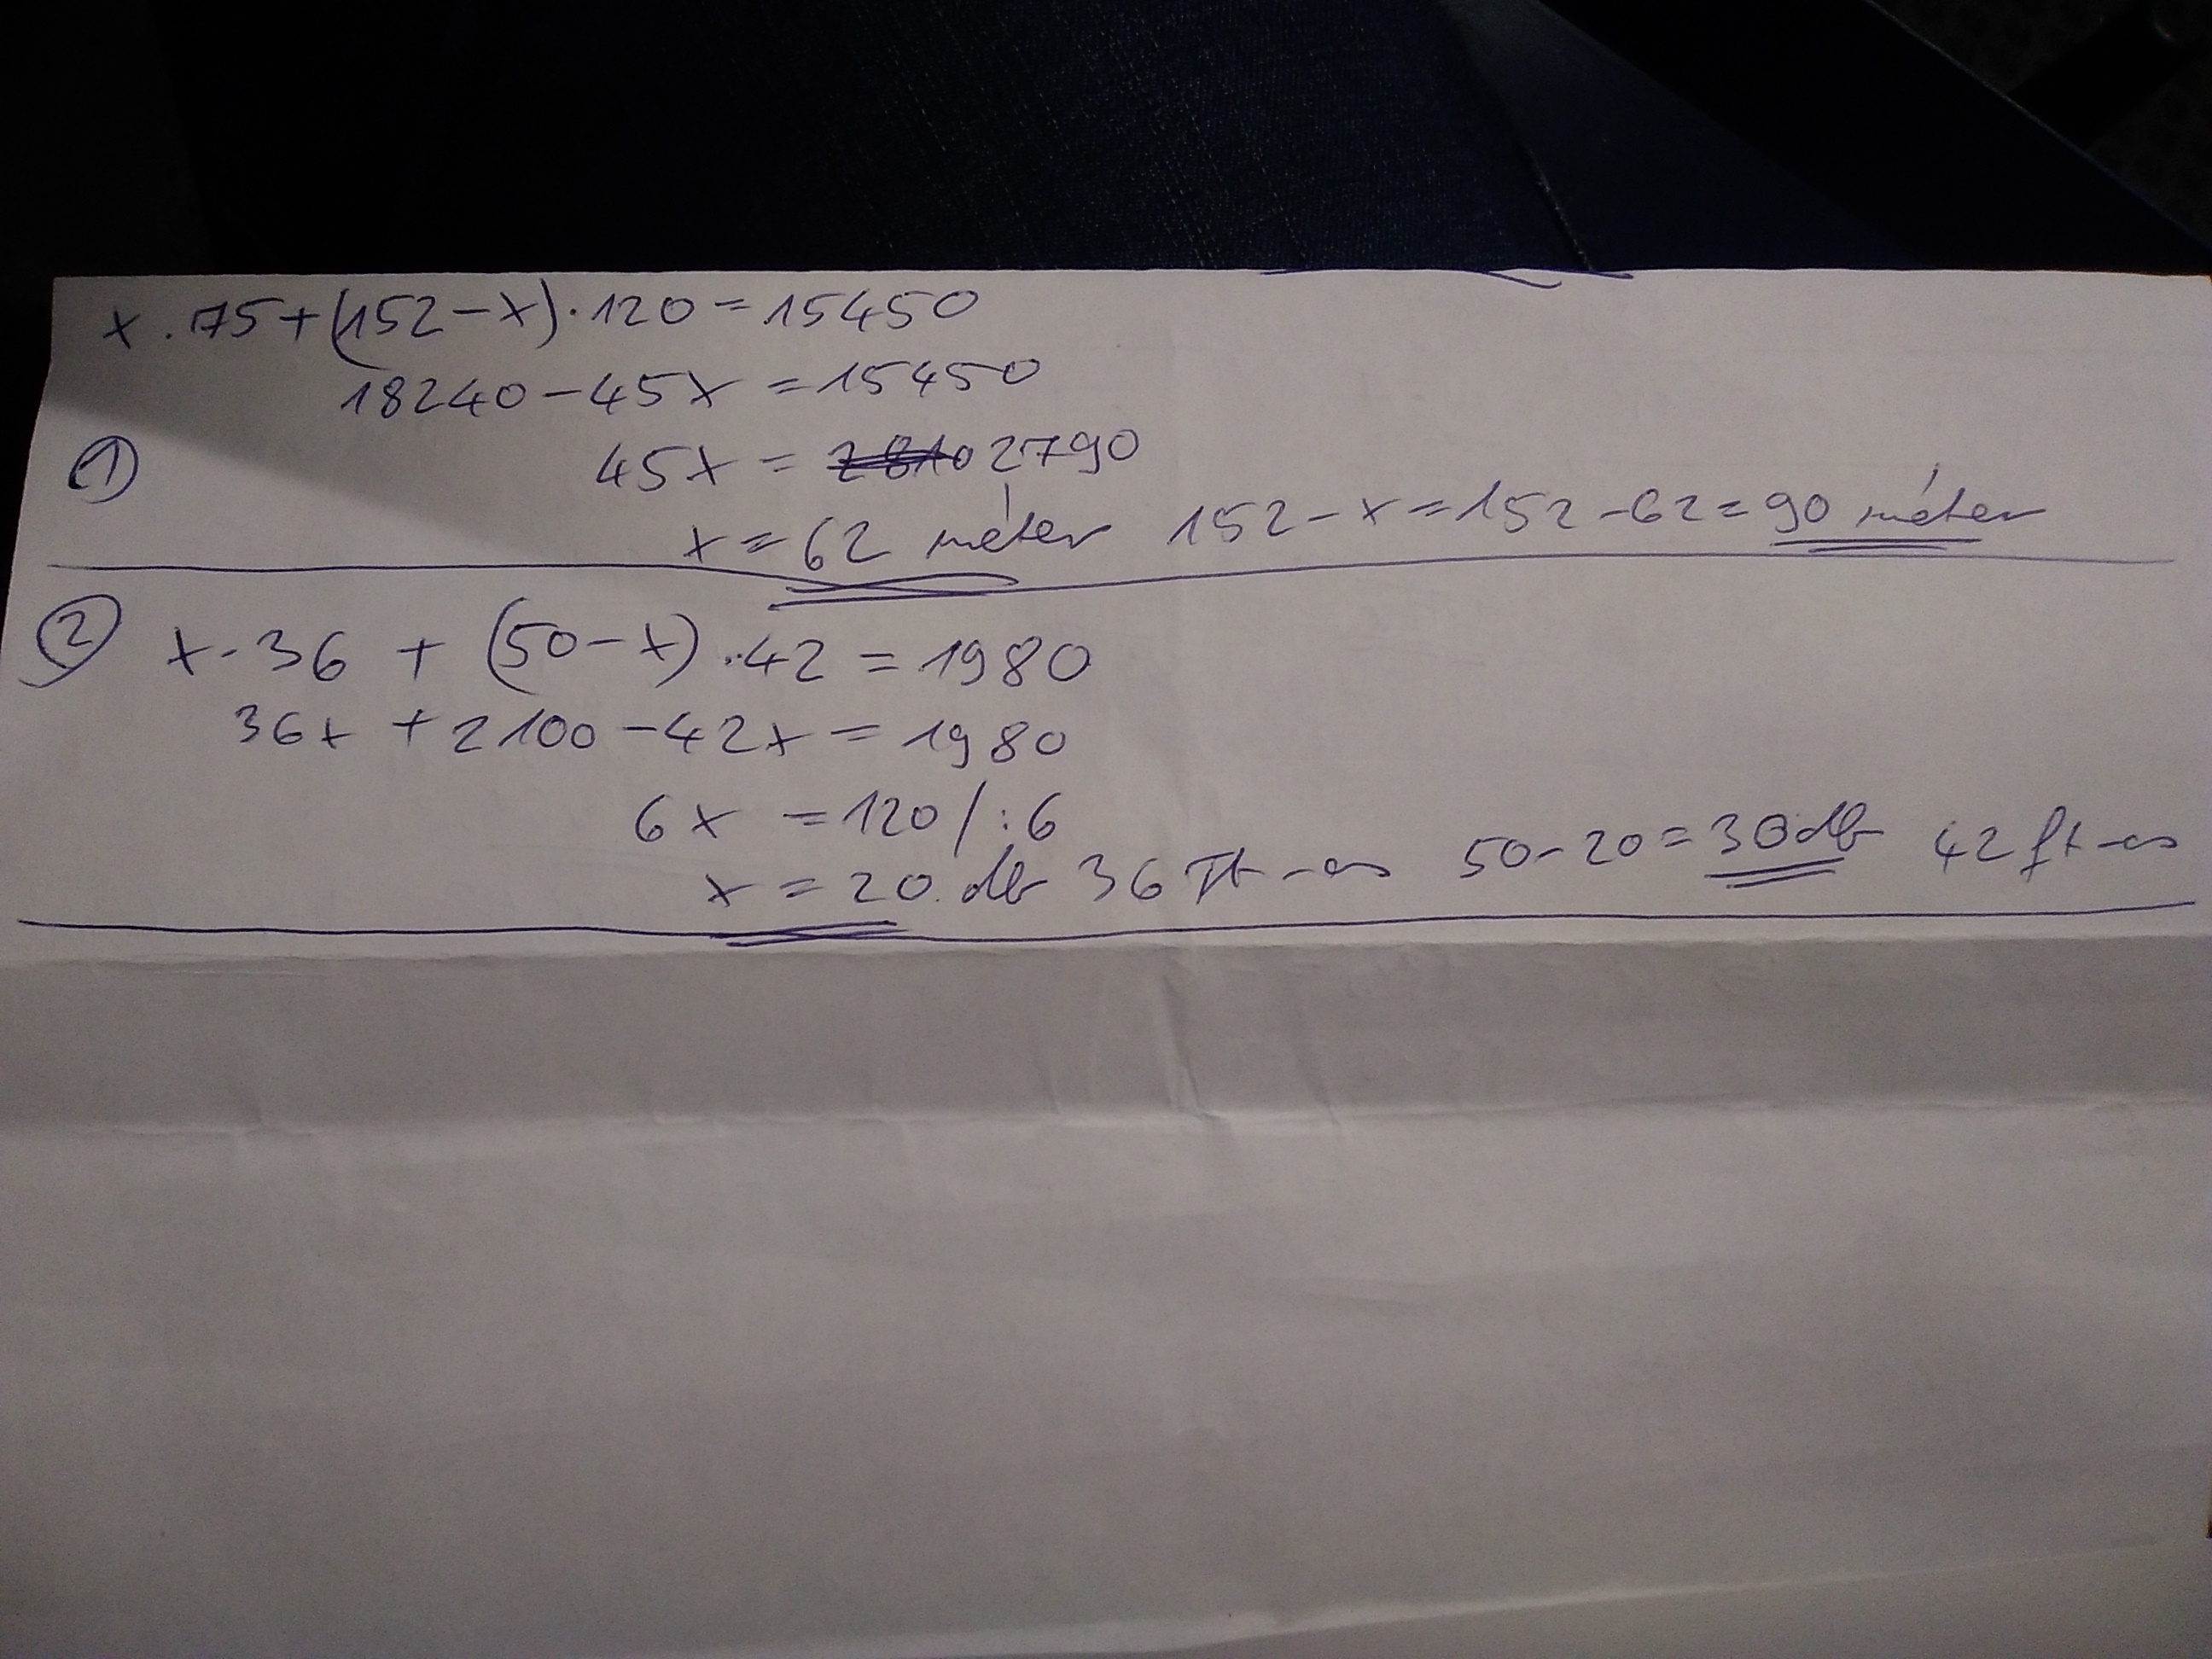 x · 75 + (152 - x) · 120 = 15450
18240 - 45x = 15450
① 45x = 2790
x = 62 méter 152 - x = 152 - 62 = 90 méter
② x · 36 + (50 - x) · 42 = 1980
36x + 2100 - 42x = 1980
6x = 120 / : 6
x = 20 db 36 Ft-os 50 - 20 = 30 db 42 ft-os